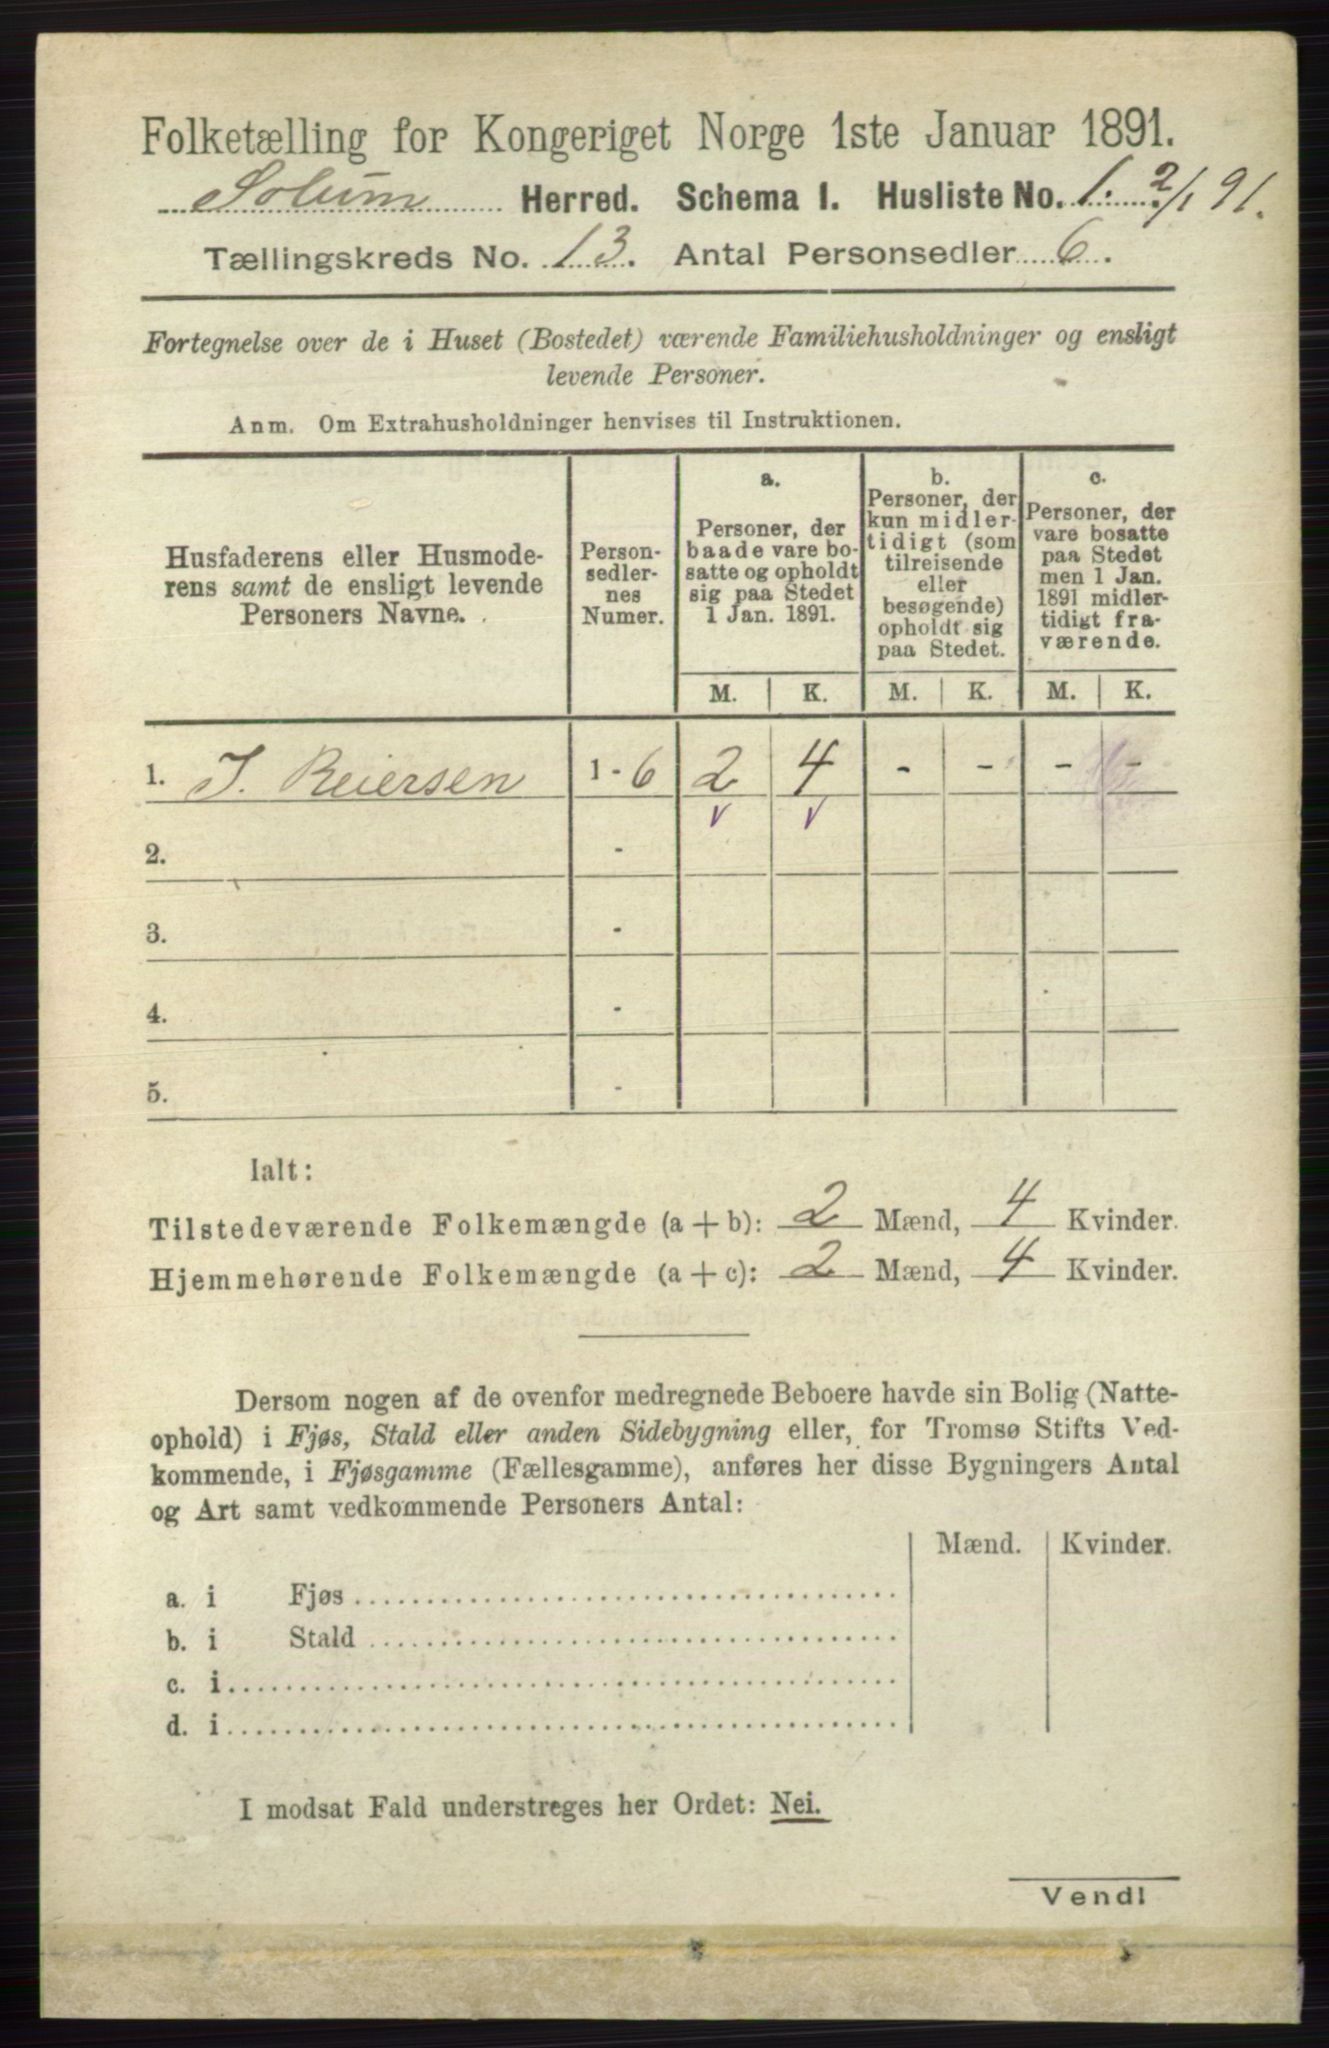 Folketælling for Kongeriget Norge 1ste Januar 1891.
Solum Herred. Schema I. Husliste No. 1. 2/1 91.
Tællingskreds No. 13. Antal Personsedler 6.
Fortegnelse over de i Huset (Bostedet) værende Familiehusholdninger og ensligt
levende Personer.
Anm. Om Extrahusholdninger henvises til Instruktionen.
Husfaderens eller Husmode-
rens samt de ensligt levende
Personers Navne.
Person-
sedler-
nes
Numer.
a.
Personer, der
baade vare bo-
satte og opholdt
sig paa Stedet
1 Jan. 1891.
b.
Personer, der
kun midler-
tidigt (som
tilreisende
eller
besøgende)
opholdt sig
paa Stedet.
c.
Personer, der
vare bosatte
paa Stedet
men 1 Jan.
1891 midler-
tidigt fra-
værende.
M. K. M. K. M. K.
1. J. Reiersen 1 - 6 2 4 - - - -
v v
2. -
3. -
4. -
5. -
Ialt:
Tilstedeværende Folkemængde (a + b): 2 Mænd, 4 Kvinder.
Hjemmehørende Folkemængde (a + c): 2 Mænd, 4 Kvinder.
Dersom nogen af de ovenfor medregnede Beboere havde sin Bolig (Natte-
ophold) i Fjøs, Stald eller anden Sidebygning eller, for Tromsø Stifts Ved-
kommende, i Fjøsgamme (Fællesgamme), anføres her disse Bygningers Antal
og Art samt vedkommende Personers Antal:
Mænd. Kvinder.
a. i Fjøs
b. i Stald
c. i
d. i
I modsat Fald understreges her Ordet: Nei.
Vend!